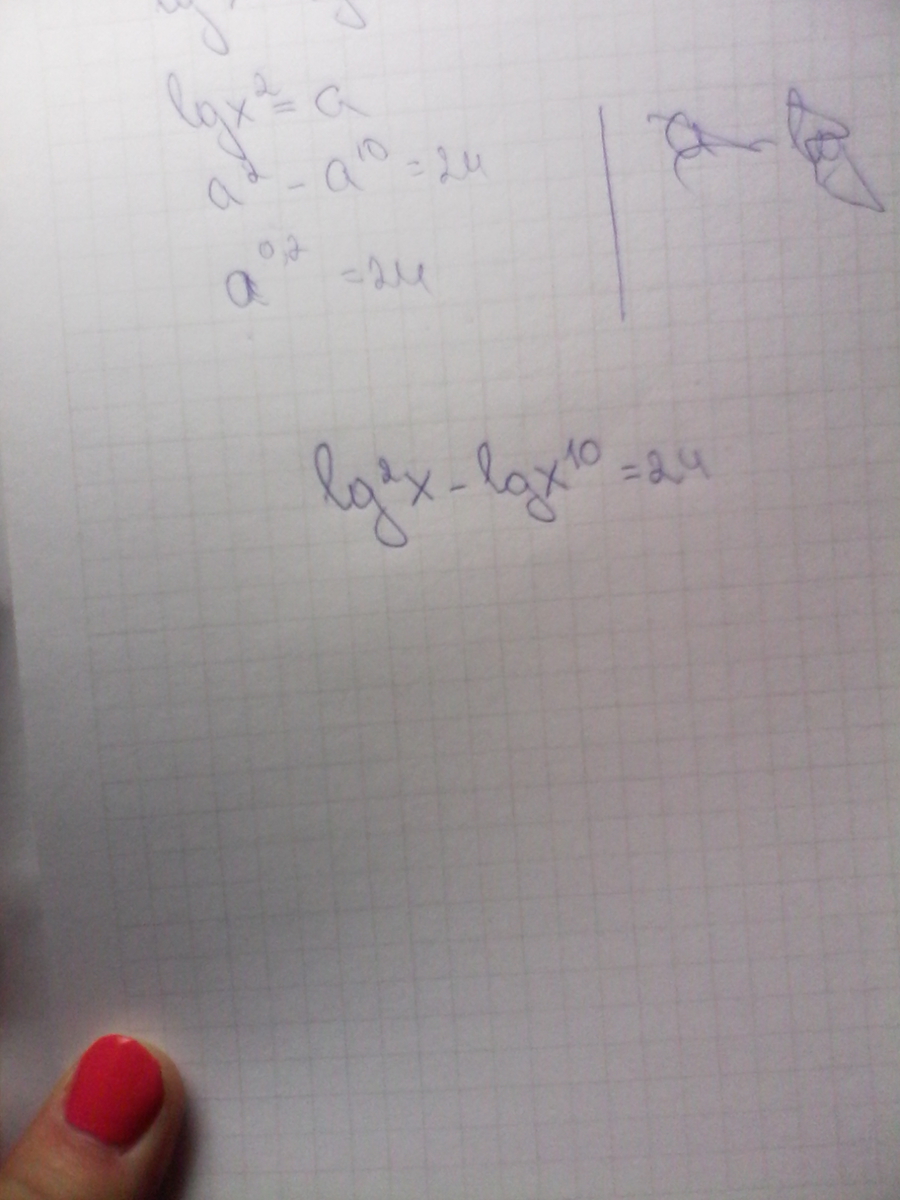 lgx² = a
a² - a¹⁰ = 24
a⁰,² = 24
lg²x - lgx¹⁰ = 24